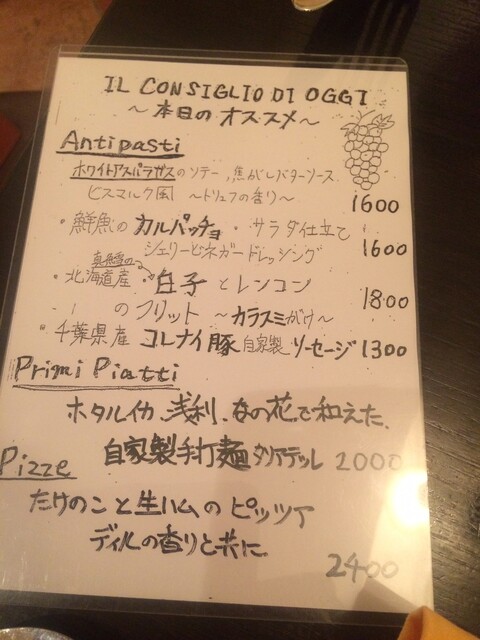 IL CONSIGLIO DI OGGI
～本日のオススメ～
Antipasti
ホワイトアスパラガスのソテー、焦がしバターソース
ビスマルク風 ～トリュフの香り～ 1600
・鮮魚のカルパッチョ・サラダ仕立て
シェリービネガードレッシング 1600
真鱈の
・北海道産 白子とレンコン
のフリット ～カラスミがけ～ 1800
・千葉県産 コレナイ豚 自家製ソーセージ 1300
Primi Piatti
ホタルイカ、浅利、なの花で和えた、
自家製手打麺タリアテッレ 2000
Pizze
たけのこと生ハムのピッツァ
ディルの香りと共に 2400